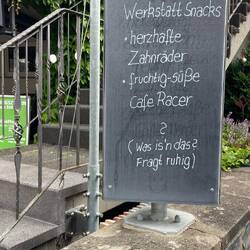 Werkstatt Snacks
• herzhafte
Zahnräder
• fruchtig-süße
Cafe Racer
?
( Was is'n das?
Fragt ruhig )